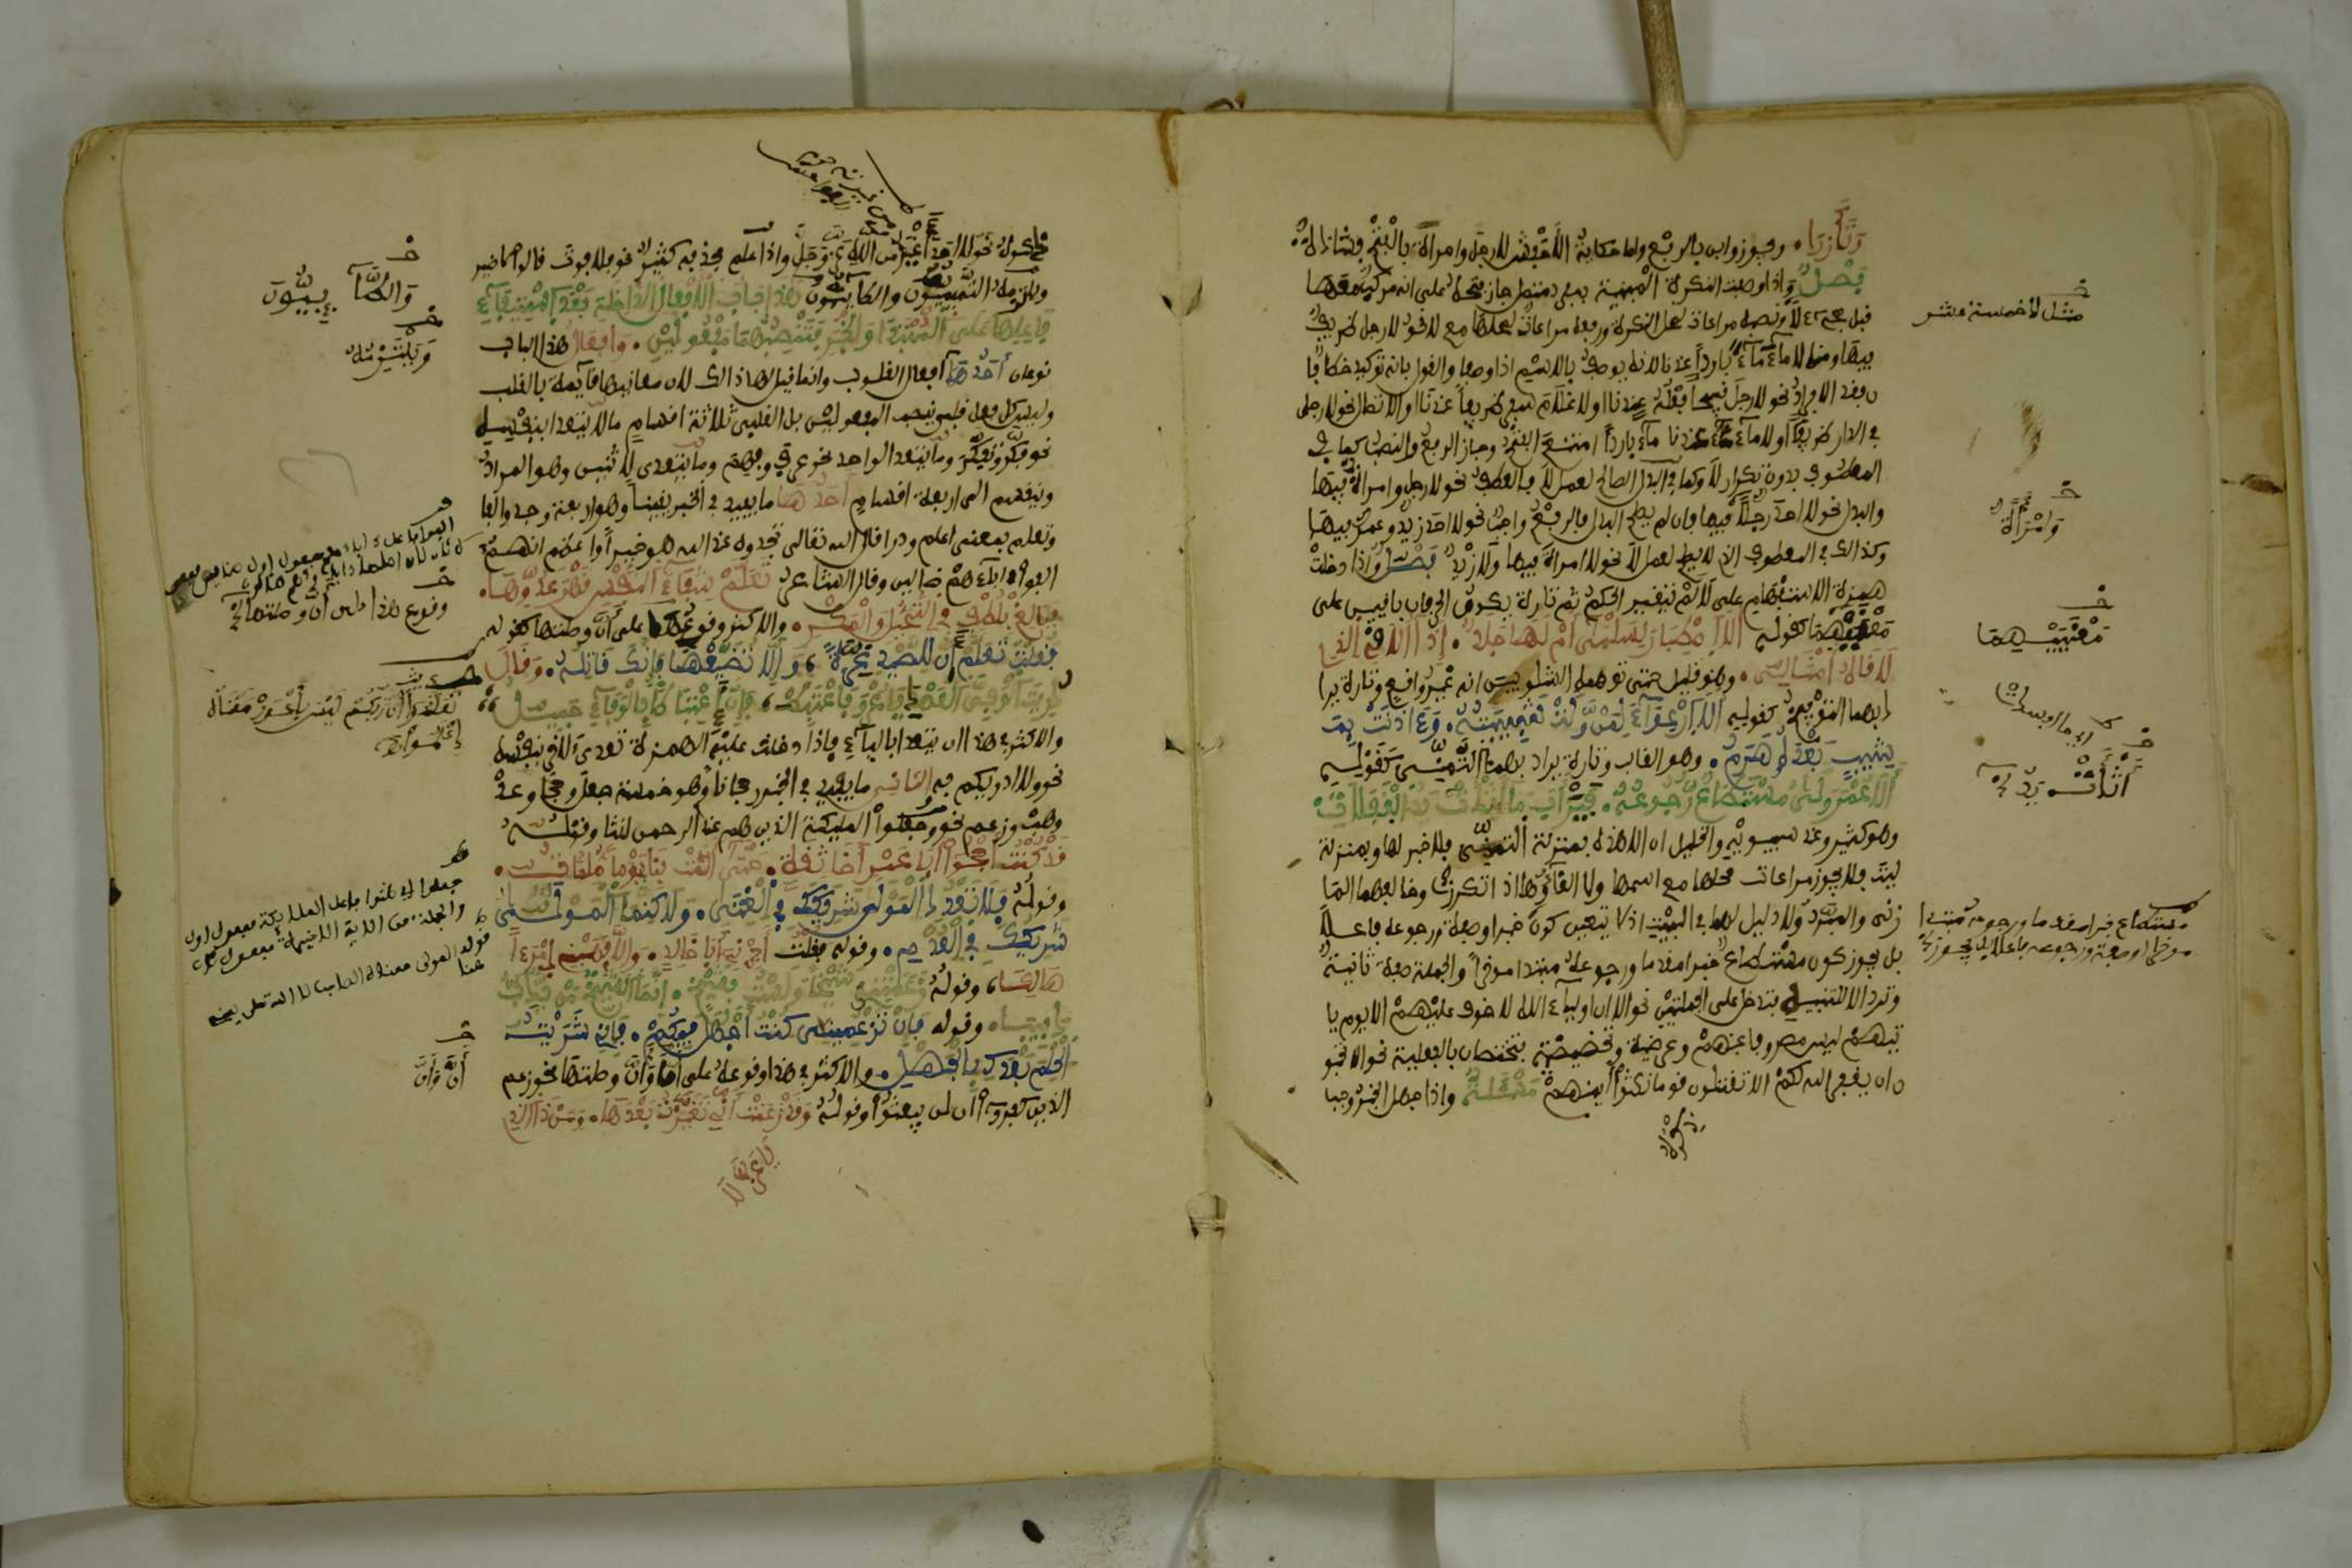 وتأزرا ويجوز وابن بالرفع واما حكاية الاخفش لا رجل وامراة بالفتح فشاذة
فصل واذا وصفت النكرة المبنية بمفرد متصل جاز فتحه على انه مركب معها
قبل مجيء لا ونصبه مراعاة لمحل النكرة ورفعه مراعاة لمحلها مع لا نحو لا رجل ظريف
فيها ومنه لا ماء ماء باردا عندنا لانه يوصف بالاسم اذا وصف والقول بانه توكيد خطا
فان فقد الافراد نحو لا رجل قبيحا فعله عندنا او لا غلام سفر ظريفا عندنا او الاتصال نحو لا رجل
في الدار ظريف او لا ماء عندنا ماء باردا امتنع الفتح وجاز الرفع والنصب كما في
المعطوف بدون تكرار لا وكما في البدل الصالح لعمل لا فالعطف نحو لا رجل وامراة فيها
والبدل نحو لا احد رجلا فيها فان لم يصلح البدل فالرفع واجب نحو لا احد زيد وعمرو فيها
وكذالك في المعطوف الذي لا يصلح لعمل لا نحو لا امراة فيها ولا زيد فصل واذا دخلت
همزة الاستفهام على لا لم يتغير الحكم ثم تارة يكون الحرفان باقيين على
معنييهما كقوله الا اصطبار لسلمى ام لها جلد اذا الاقي الذي
لاقاه امثالي وهو قليل حتى توهم الشلوبين انه غير واقع وتارة يرا
د بهما التوبيخ كقوله الا ارعواء لمن ولت شبيبته وءاذنت بمـ
شيب بعده هرم وهو الغالب وتارة يراد بهما التمني كقوله
الا عمر ولى مستطاع رجوعه فيرأب ما اثأت يد الغفلات
وهو كثير وعند سيبويه والخليل ان الا هذه بمنزلة اتمنى فلا خبر لها وبمنزلة
ليت فلا يجوز مراعاة محلها مع اسمها ولا الغاؤها اذا تكررت وخالفهما الما
زني والمبرد ولا دليل لهما في البيت اذ لا يتعين كون خبرا او صفة ورجوعه فاعلا
بل يجوز كون مستطاع خبرا مقدما ورجوعه مبتدا موخرا والجملة صفة ثانية
وترد الا للتنبيه فتدخل على الجملتين نحو الا ان اولياء الله لا خوف عليهم الا يوم يا
تيهم ليس مصروفا عنهم وعرضية وتحضيضية فتختصان بالفعلية نحو الا تحبو
ن ان يغفر الله لكم الا تقتلون قوما نكثوا ايمنهم مسئلة واذا جهل الخبر وجب
ذكره
مثل لا خمسة عشر
وامراة
معنييهما
اثأت يد
مستطاع خبرا مقدما ورجوعه مبتدا
ذكره نحو لا احد اغير من الله عز وجل واذا علم فحذفه كثير نحو فلا فوت قالوا لا ضير
ويلتزمه التميميون والطائيون هذا باب الافعال الداخلة بعد استيفاء
فاعلها على المبتدا والخبر فتنصبهما مفعولين وافعال هذا الباب
نوعان احدهما افعال القلوب وانما قيل لها ذالك لان معانيها قائمة بالقلب
وليس كل فعل قلبي ينصب المفعولين بل القلبي ثلاثة اقسام ما لا يتعدا بنفسه
نحو فكر وتفكر وما يتعدا لواحد نحو عرف وفهم وما يتعدى لاثنين وهو المراد
وينقسم الى اربعة اقسام احدها ما يفيد في الخبر يقينا وهو اربعة وجد والفا
وتعلم بمعنى اعلم ودرا قال الله تعالى تجدوه عند الله هو خيرا واعظم انهم
الفوا ءاباءهم ضالين وقال الشاعر تعلم شفاء النفس قهر عدوها
فبالغ بلطف في التحيل والمكر والاكثر وقوع هذا على ان وصلتها كقوله
فقلت تعلم ان للصيد غرة والا تضيعها فانك قاتله وقال
دريت الوفي العهد يا عرو فاغتبط فان اغتباطا بالوفاء حميد
والاكثر في هذا ان يتعدا بالباء فاذا دخلت عليه الهمزة تعدى لاخر بنفسه
نحو ولا ادريكم به الثاني ما يفيد في الخبر رجحانا وهو خمسة جعل وحجا وعد
وهب وزعم نحو وجعلوا المليكة الذين هم عند الرحمن انثا وقوله
قد كنت احجوا ابا عمرو اخا ثقة حتى المت بنا يوما ملمات
وقوله فلا تعدد المولى شريكك في الغنى ولاكنما المولى
شريكك في العدم وقوله فقلت اجرني ابا خالد والا فهبني امرءا
هالكا وقوله زعمتني شيخا ولست بشيخ انما الشيخ من يدب
دبيبا وقوله فان تزعميني كنت اجهل فيكم فاني شريت
الحلم بعدك بالجهل والاكثر في هذا وقوعه على ان وان وصلتها نحو زعم
الذين كفروا ان لن يبعثوا وقوله وقد زعمت اني تغيرت بعدها ومن ذا الذي
يا عز لا
والطائييون
ويلتزمه
وقوع هذا على ان وصلتها
تعلموا ان ربكم ليس باعور
ان وان